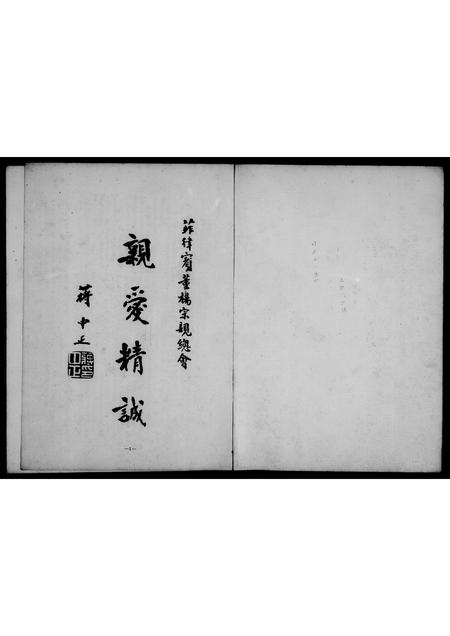 菲律賓董楊宗親總會
親愛精誠
蔣中正
—1—